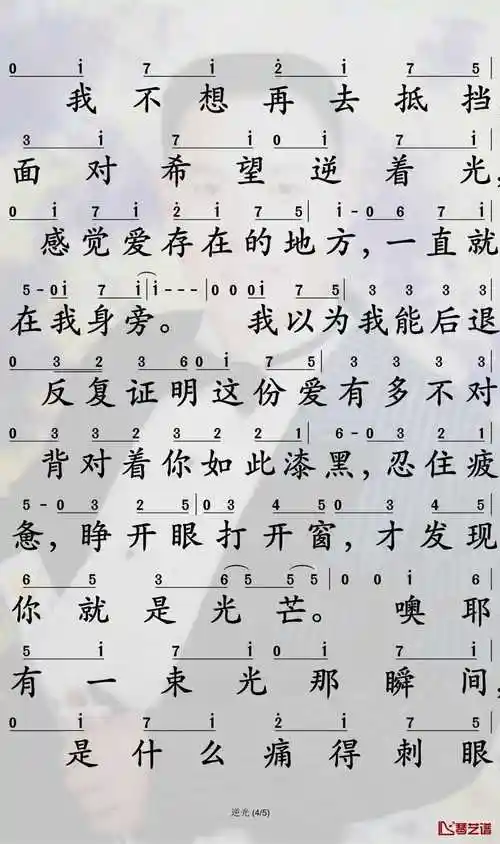 0 i 7 i 2 i 7 5|
我不想再去抵挡
3 i 7 i 0 i 7 i|
面对希望逆着光，
0 i 7 i 2 i 7 5|i-0 6 7 i|
感觉爱存在的地方，一直就
5-0i 7 i i|i---|000i 7 5|3 3 3 3|
在我身旁。我以为我能后退
0 3 2 3 6 0 i 7 5|3 3 3 3|
反复证明这份爱有多不对
0 3 3 2 3 3 2 2 1|6-0 3 2 1|
背对着你如此漆黑，忍住疲
5-0 3 2 5|0 3 4 5|0 3 4 5|
惫，睁开眼打开窗，才发现
6 5 3 6 5 5 5|0 0 i 6|
你就是光芒。噢耶
5 i 7 i 0 i 7 i|
有一束光那瞬间，
0 i 7 i 2 i 7 5|
是什么痛得刺眼
逆光 (4/5)
琴艺谱